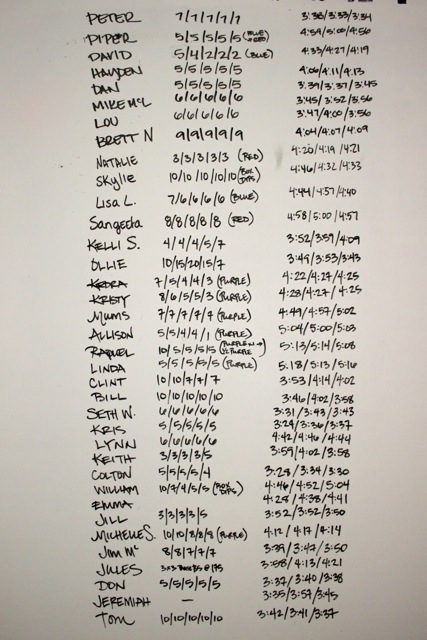 PETER 7/7/7/7/7 3:38/3:33/3:34
PIPER 5/5/5/5/5 (BLUE & RED) 4:59/5:00/4:56
DAVID 5/4/2/2/2 (BLUE) 4:33/4:27/4:19
HAYDEN 5/5/5/5/5 4:06/4:11/4:13
DAN 5/5/5/5/5 3:39/3:37/3:45
MIKE McL 6/6/6/6/6 3:45/3:52/3:56
LOU 6/6/6/6/6 3:47/4:00/3:56
BRETT N 9/9/9/9/9 4:04/4:07/4:09
NATALIE 3/3/3/3/3 (RED) 4:20/4:19/4:21
SKYLIE 10/10/10/10/10 (BOX DIPS) 4:46/4:32/4:33
LISA L. 7/6/6/6/6 (BLUE) 4:44/4:57/4:40
Sangeeta 8/8/8/8/8 (RED) 4:58/5:00/4:57
KELLI S. 4/4/4/5/7 3:52/3:59/4:09
OLLIE 10/15/20/15/7 3:49/3:53/3:43
KEDRA 7/5/4/4/3 (PURPLE) 4:22/4:27/4:25
KRISTY 8/6/5/5/3 (PURPLE) 4:28/4:27/4:25
MUMS 7/7/7/7/7 (PURPLE) 4:49/4:57/5:02
ALLISON 5/5/4/4/1 (PURPLE) 5:04/5:00/5:03
RAQUEL 10/5/5/5/5 5:13/5:14/5:08
LINDA 5/5/5/5/5 (PURPLE) 5:18/5:13/5:16
CLINT 10/10/7/7/7 3:53/4:14/4:02
BILL 10/10/10/10/10 3:46/4:02/3:58
SETH W. 6/6/6/6/6 3:31/3:43/3:43
KRIS 5/5/5/5/5 3:29/3:36/3:37
LYNN 6/6/6/6/6 4:42/4:46/4:44
KEITH 3/3/3/3/5 3:59/4:02/3:58
COLTON 5/5/5/5/4 3:28/3:34/3:30
WILLIAM 10/7/4/5/5 (BOX DIPS) 4:46/4:52/5:04
EMMA 4:28/4:38/4:41
JILL 3/3/3/3/5 3:52/3:52/3:50
MICHELLE S. 10/10/8/8/8 (PURPLE) 4:12/4:17/4:14
JIM Mc 8/8/7/7/7 3:39/3:47/3:50
JULES 3x3 @ 195 3:58/4:13/4:21
DON 5/5/5/5/5 3:37/3:40/3:38
JEREMIAH — 3:35/3:57/3:45
TOM 10/10/10/10/10 3:42/3:41/3:37